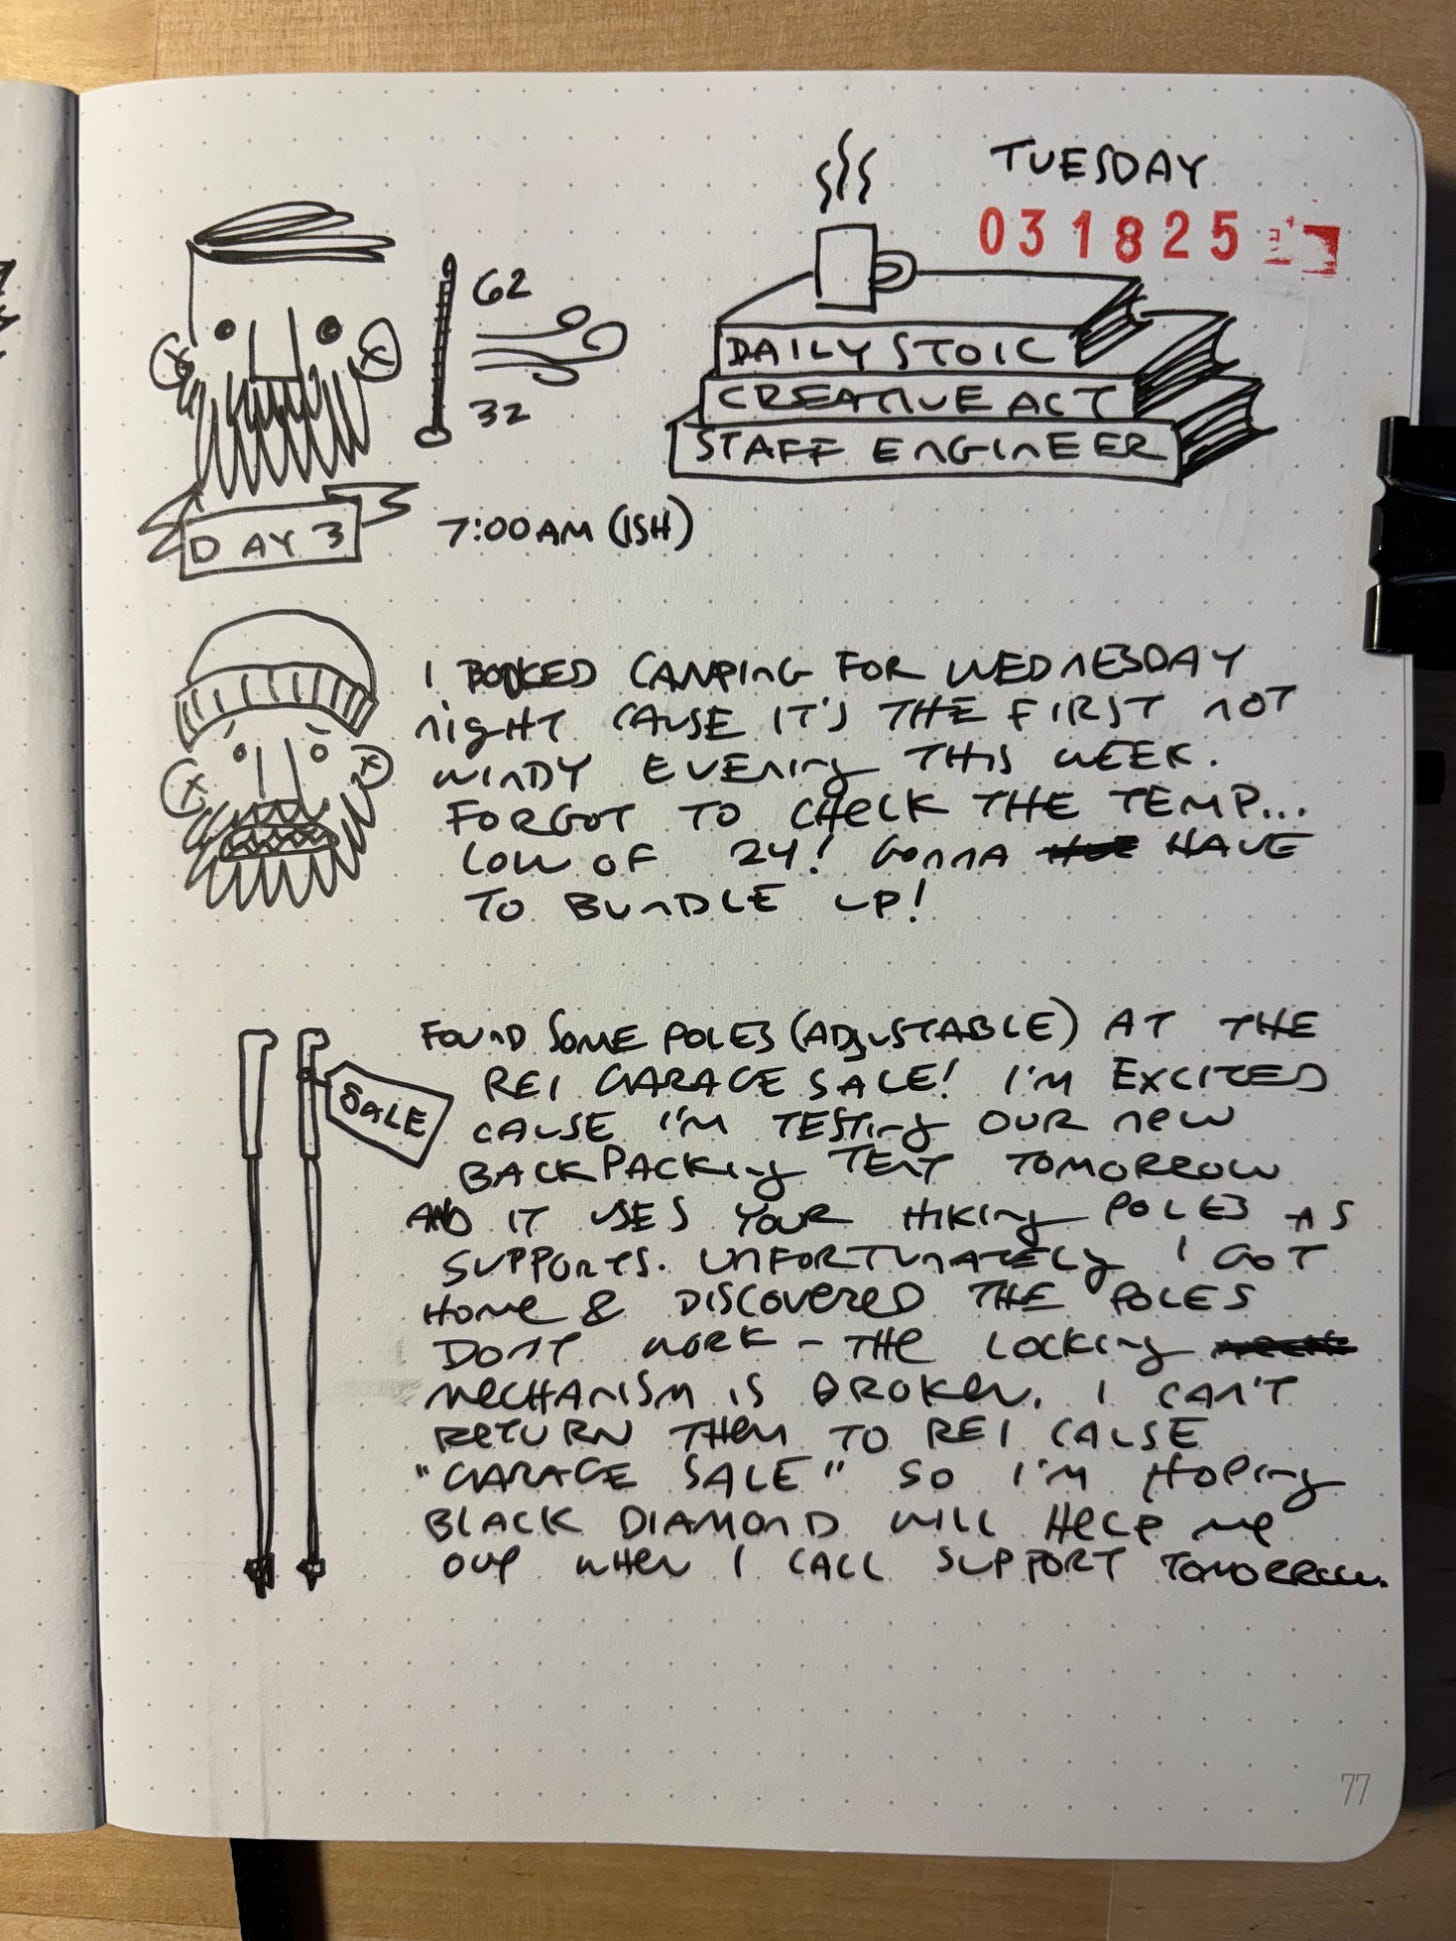 TUESDAY
031825
62
32
DAILY STOIC
CREATIVE ACT
STAFF ENGINEER
DAY 3
7:00AM (ISH)
I BOOKED CAMPING FOR WEDNESDAY
NIGHT CAUSE IT'S THE FIRST NOT
WINDY EVENING THIS WEEK.
FORGOT TO CHECK THE TEMP...
LOW OF 24! GONNA HAVE
TO BUNDLE UP!
FOUND SOME POLES (ADJUSTABLE) AT THE
REI GARAGE SALE! I'M EXCITED
SALE
CAUSE I'M TESTING OUR NEW
BACKPACKING TENT TOMORROW
AND IT USES YOUR HIKING POLES AS
SUPPORTS. UNFORTUNATELY I GOT
HOME & DISCOVERED THE POLES
DON'T WORK - THE LOCKING
MECHANISM IS BROKEN. I CAN'T
RETURN THEM TO REI CAUSE
"GARAGE SALE" SO I'M HOPING
BLACK DIAMOND WILL HELP ME
OUT WHEN I CALL SUPPORT TOMORROW.
77